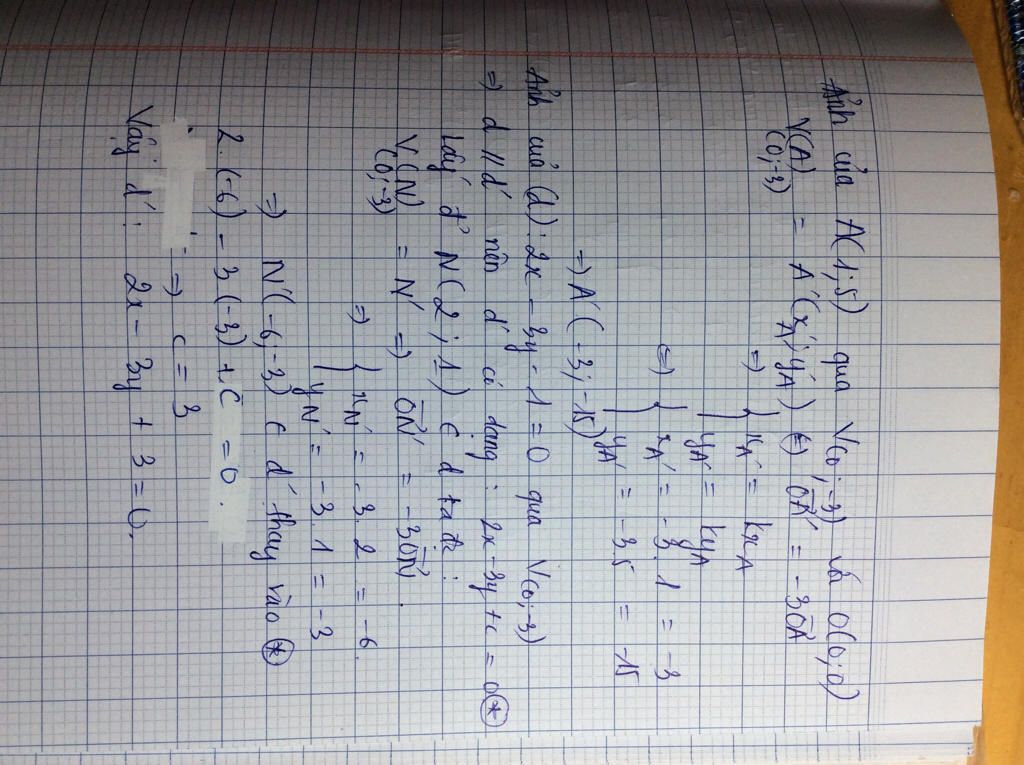 Ảnh của A(1;5) qua V(O;-3) với O(0;0)
V(A) = A'(x'A; y'A) (=) OA' = -3OA
(O;-3)
=) { xA' = kxA
yA' = kyA
(=) { xA' = -3.1 = -3
yA' = -3.5 = -15
=) A'(-3;-15)
Ảnh của (d): 2x - 3y - 1 = 0 qua V(O;-3)
=) d // d' nên d' có dạng: 2x - 3y + c = 0 (*)
Lấy đ' N(2;1) ∈ d ta đc:
V(N) = N' =) ON' = -3ON.
(O;-3)
=) { xN' = -3.2 = -6.
yN' = -3.1 = -3
=) N'(-6;-3) ∈ d' thay vào (*)
2.(-6) - 3(-3) + C = 0.
=) c = 3
Vậy d': 2x - 3y + 3 = 0.